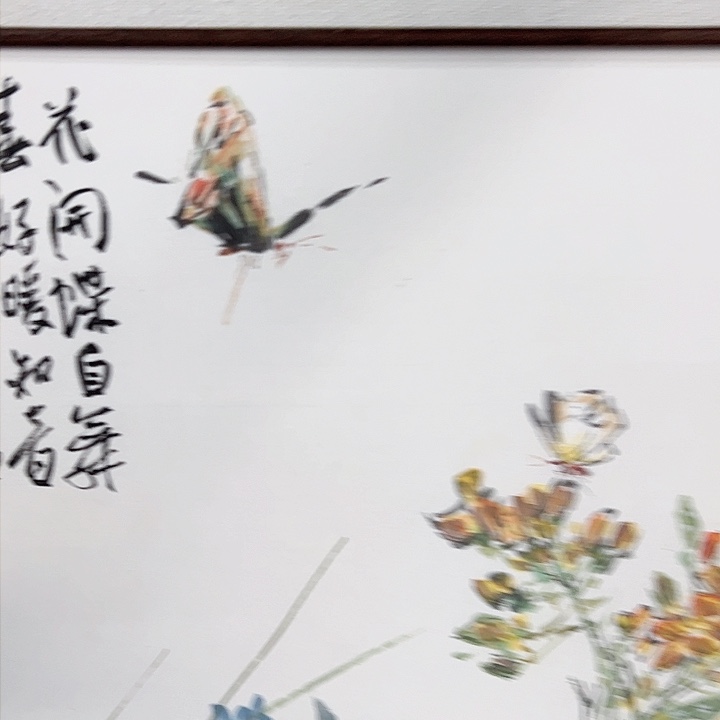 花開蝶自舞
喜好暖知